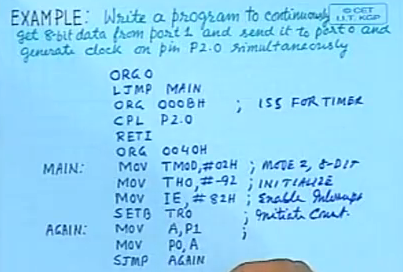 EXAMPLE: Write a program to continuously
© CET
I.I.T. KGP
get 8-bit data from port 1 and send it to port 0 and
generate clock on pin P2.0 simultaneously
ORG 0
LJMP MAIN
ORG 000BH ; ISS FOR TIMER
CPL P2.0
RETI
ORG 0040H
MAIN: MOV TMOD, #02H ; MODE 2, 8-BIT
MOV TH0, #-92 ; INITIALIZE
MOV IE, #82H ; Enable Interrupts
SETB TR0 ; Initiate Count.
AGAIN: MOV A,P1 ;
MOV P0,A
SJMP AGAIN